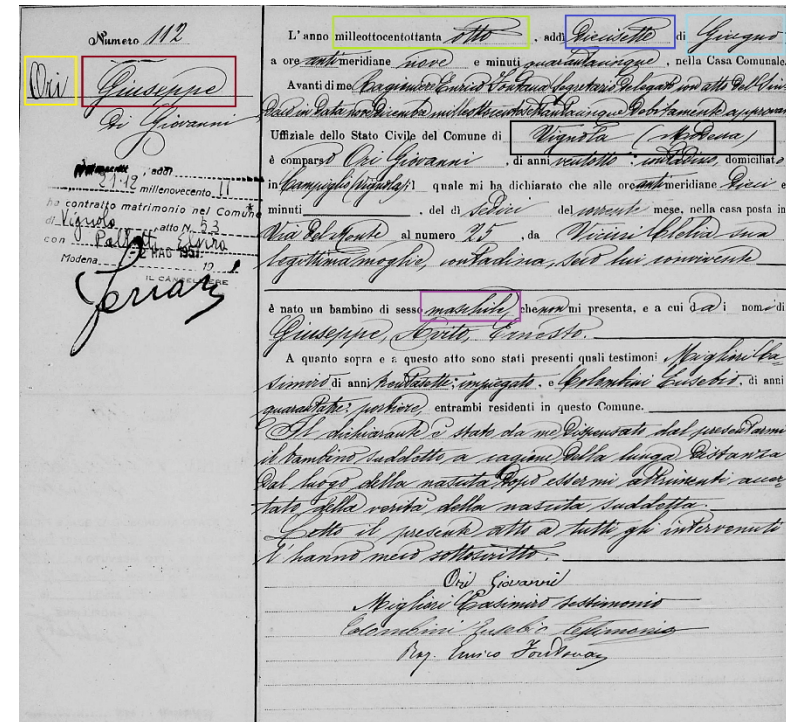 Numero 112
Ori Giuseppe
di Giovanni
addì
21-12 millenovecento 11
ha contratto matrimonio nel Comune
di Vignola atto N. 53
con Elvira
Modena 2 MAG 1951
IL CANCELLIERE
Ferrari
L'anno milleottocentottanta otto, addì diecisette di Giugno
a ore anti meridiane nove e minuti quarantacinque, nella Casa Comunale.
Avanti di me Ragioniere Enrico Fontana Segretario delegato con atto del Sin-
daco in data nove Dicembre milleottocentottantacinque debitamente approvato
Uffiziale dello Stato Civile del Comune di Vignola (Modena)
è comparso Ori Giovanni, di anni ventotto, contadino, domiciliato
in Campiglio (Vignola) il quale mi ha dichiarato che alle ore anti meridiane dieci e
minuti, del dì sedici del corrente mese, nella casa posta in
Via del Monte al numero 25, da Vicini Clelia sua
legittima moglie, contadina, seco lui convivente
è nato un bambino di sesso maschile, che non mi presenta, e a cui dà i nomi di
Giuseppe, Avito, Ernesto.
A quanto sopra e a questo atto sono stati presenti quali testimoni Miglior Ca-
simiro di anni trentasette, impiegato, e Colombini Eusebio, di anni
quarantatre, portiere, entrambi residenti in questo Comune.
Il dichiarante è stato da me dispensato dal presentarmi
il bambino suddetto, a cagione della lunga distanza
dal luogo della nascita dopo essermi altrimenti accer-
tato della verità della nascita suddetta.
Letto il presente atto a tutti gli intervenuti
l'hanno meco sottoscritto.
Ori Giovanni
Migliori Casimiro testimonio
Colombini Eusebio testimonio
Rag. Enrico Fontana